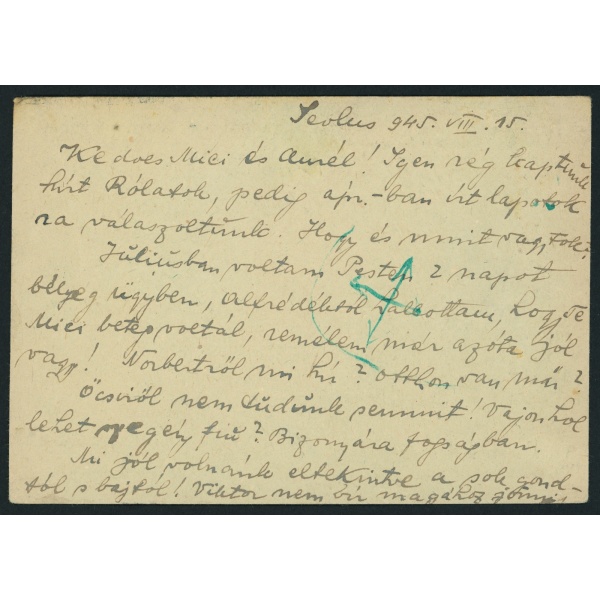 Sevlus 945. VIII. 15.
Kedves Mici és Aurél! Igen rég kaptunk
hírt Rólatok, pedig ápr.-ban írt lapotok
ra válaszoltunk. Hogy és mint vagytok?
Júliusban voltam Pesten 2 napot
bélyeg ügyben, Alfrédéktól hallottam, hogy Te
Mici beteg voltál, remélem már azóta jól
vagy! Norbertről mi hír? Otthon van már?
Öcsiről nem tudunk semmit! Vajon hol
lehet szegény fiú? Bizonyára fogságban.
Mi jól volnánk eltekintve a sok gond-
tól s bajtól! Viktor nem bír magához